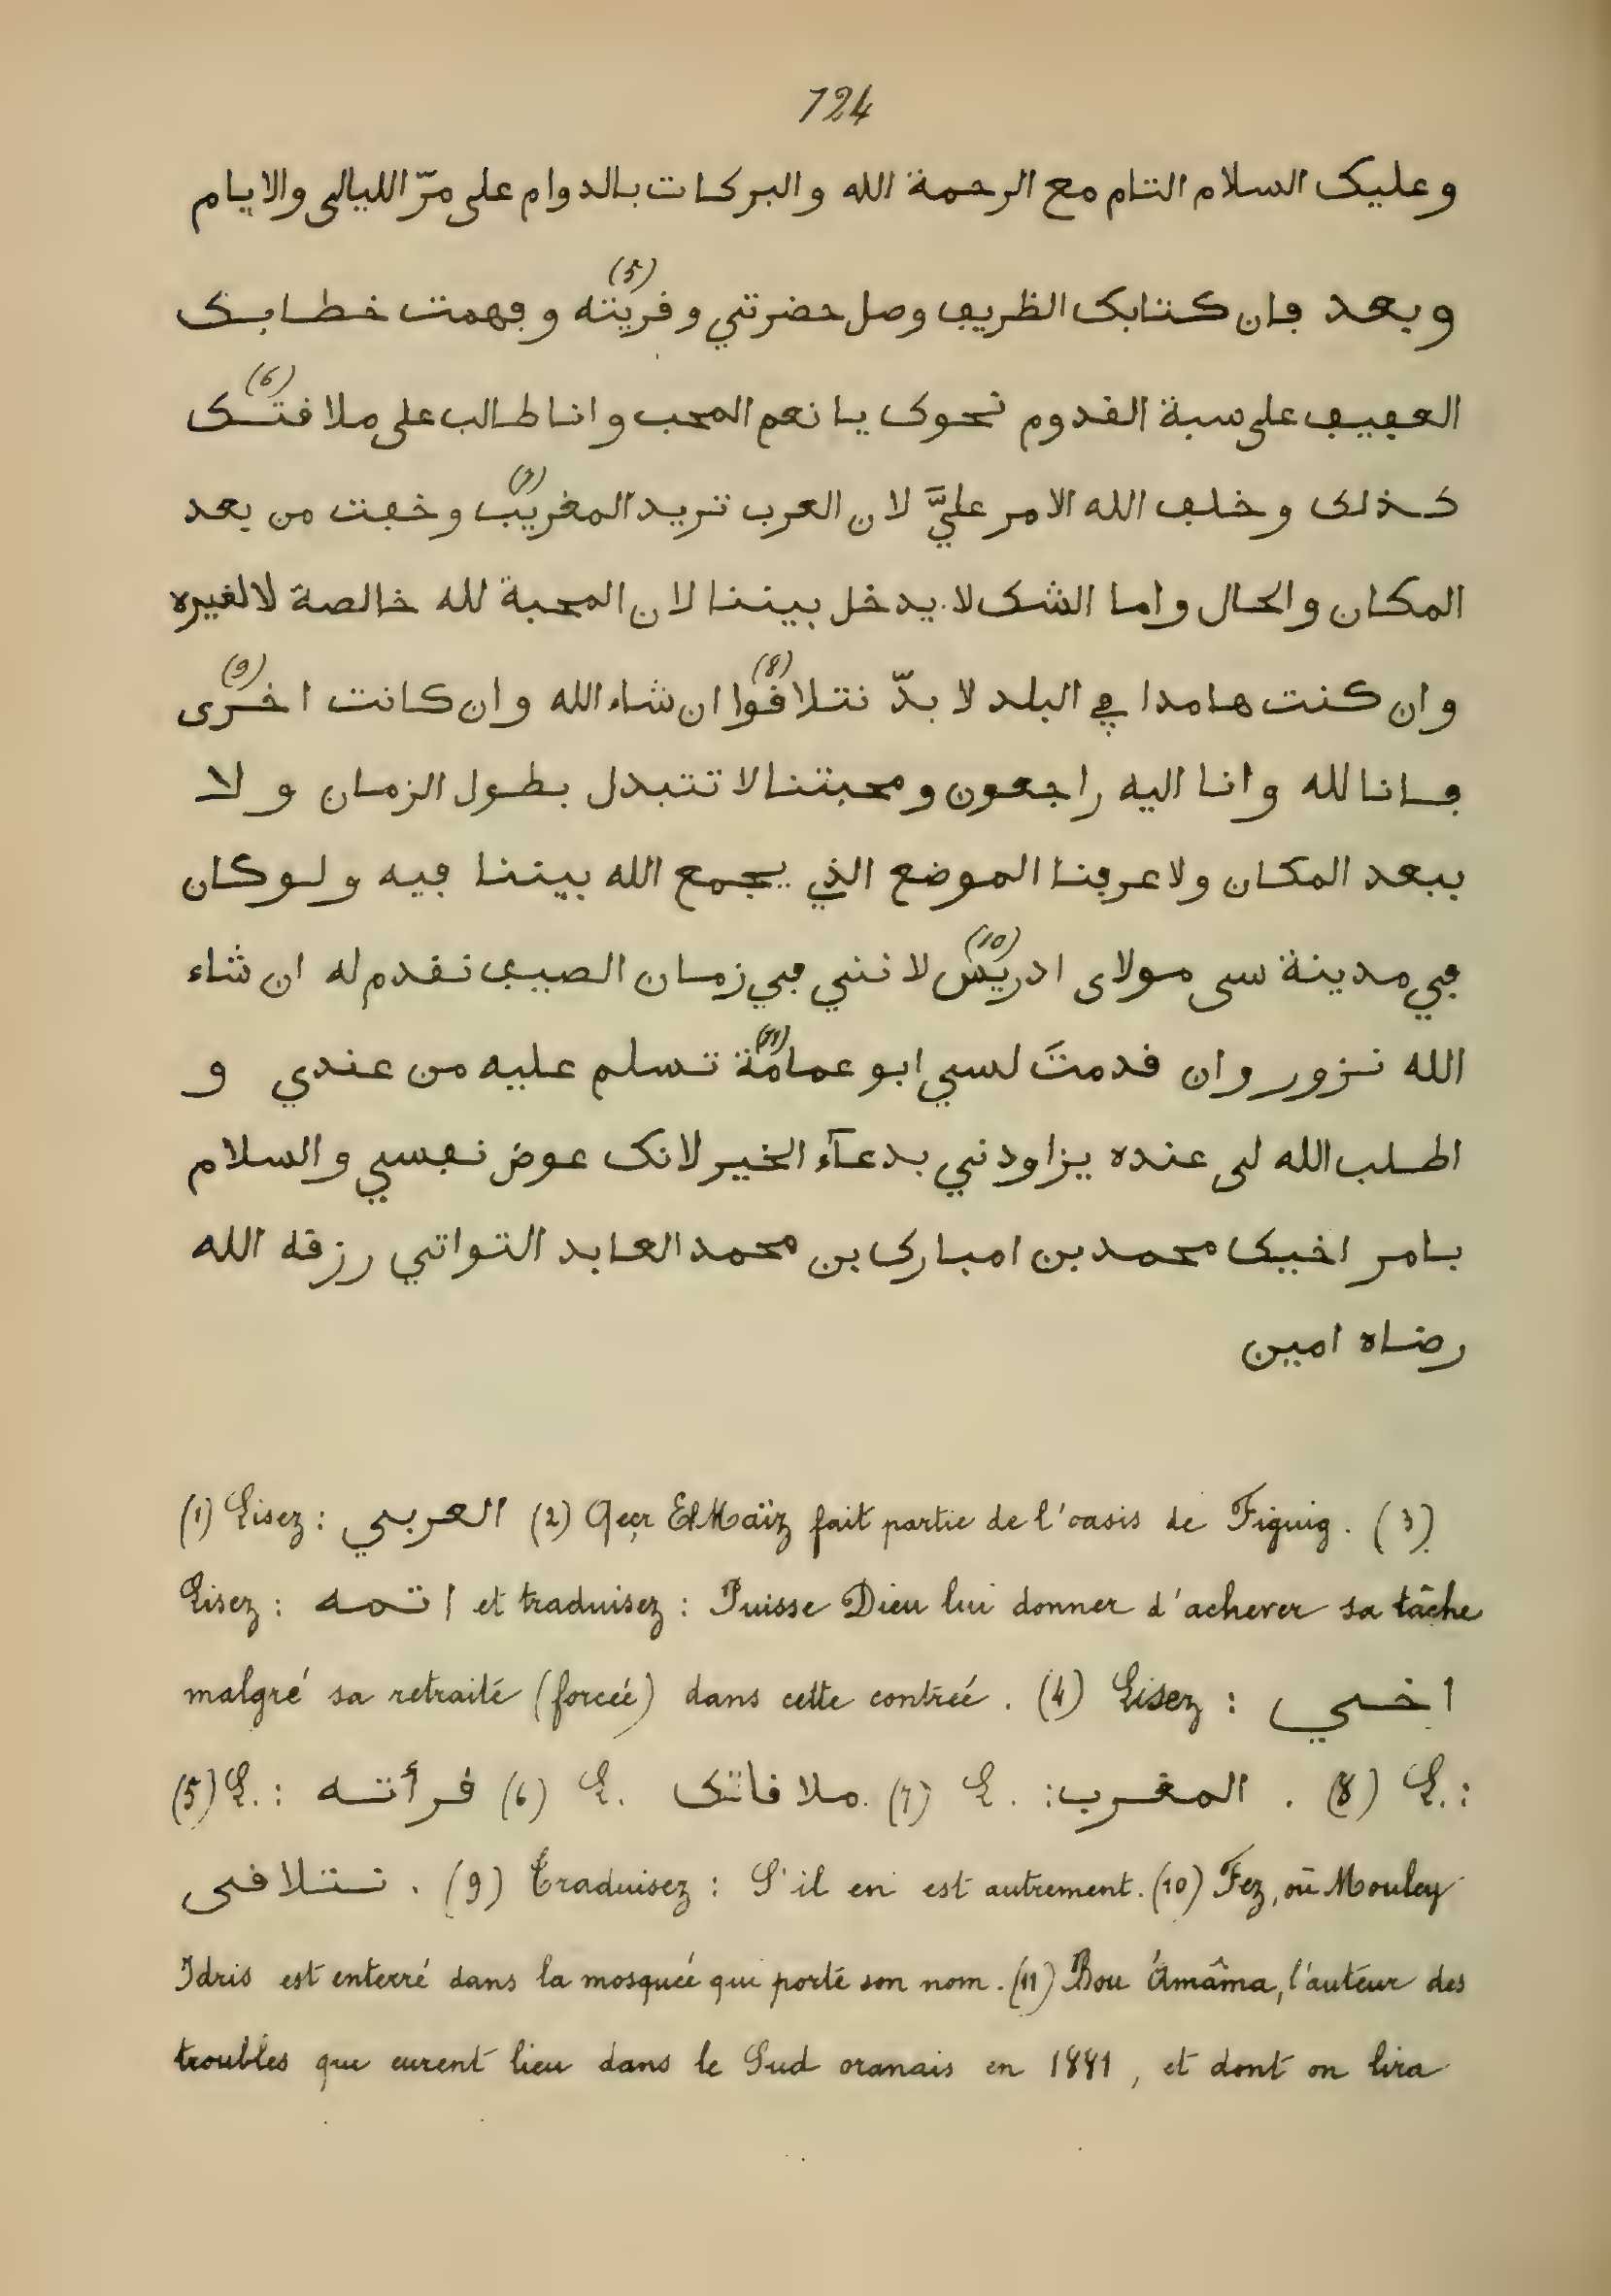 124
وعليك السلام التام مع الرحمة الله والبركات بالدوام على مرّ الليالى والايام
وبعد ڢان كتابك الظريڢ وصل حضرتي وفريته (5) وڢهمت خطابك
العڢيڢ على سبة الفدوم نحوك يا نعم المحب وانا طالب على ملافتك (6)
كذلك وخلڢ الله الامر عليَّ لان العرب تريد المغريب (7) وخڢت من بعد
المكان والحال واما الشك لا يدخل بيننا لان المحبة لله خالصة لا لغيره
وان كنت هامدا ڢي البلد لا بدّ نتلافوا (8) ان شاء الله وان كانت اخرى (9)
ڢانا لله وانا اليه راجعون ومحبتنا لا تتبدل بطول الزمان ولا
ببعد المكان ولا عرڢنا الموضع الذي يجمع الله بيننا ڢيه ولو كان
ڢي مدينة سى مولاى ادريس (10) لاننني ڢي زمان الصيڢ نفدم له ان شاء
الله نزور وان فدمتَ لسي ابو عمامة (11) تسلم عليه من عندي و
اطلب الله لى عنده يزاودني بدعآء الخير لانك عوض نڢسي والسلام
بامر اخيك محمد بن امبارك بن محمد العابد التواتي رزفه الله
رضاه امين
(1) Lisez : العربي (2) Qeçr El Maïz fait partie de l'oasis de Figuig. (3)
Lisez : اتمه et traduisez : Puisse Dieu lui donner d'achever sa tâche
malgré sa retraite (forcée) dans cette contrée. (4) Lisez : اخي
(5) L. : فرأته (6) L. ملافاتك. (7) L. : المغرب . (8) L. :
نتلافى . (9) Traduisez : S'il en est autrement. (10) Fez, où Mouley
Idris est enterré dans la mosquée qui porte son nom. (11) Bou Ámâma, l'auteur des
troubles qui eurent lieu dans le Sud oranais en 1881, et dont on lira